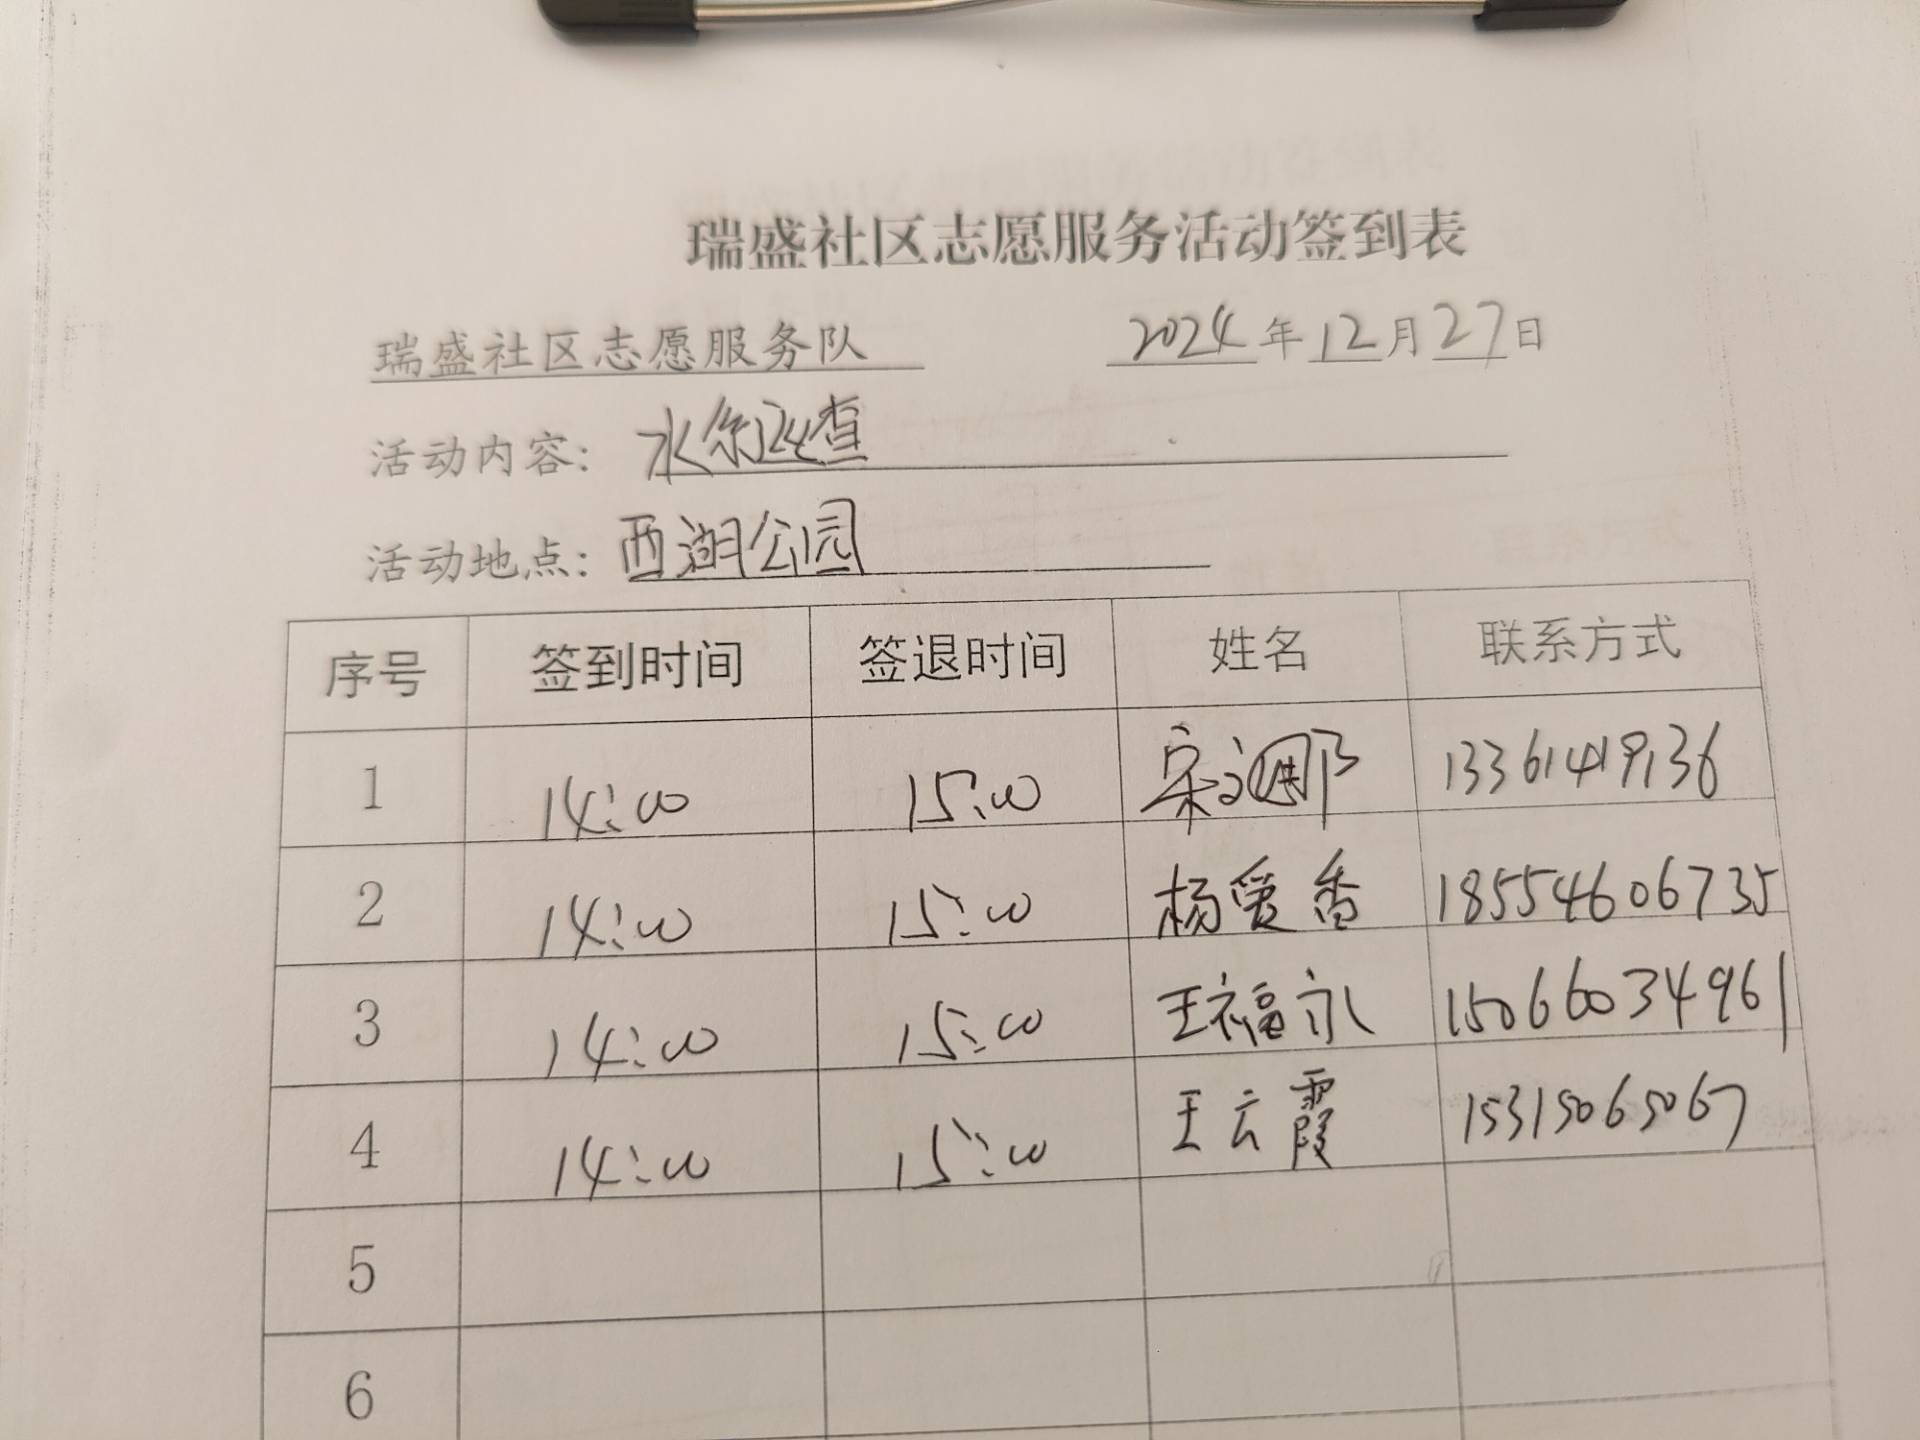 瑞盛社区志愿服务活动签到表
瑞盛社区志愿服务队 2024年12月27日
活动内容: 水系巡查
活动地点: 西湖公园
序号 签到时间 签退时间 姓名 联系方式
1 14:00 15:00 13361419136
2 14:00 15:00 杨爱香 18554606735
3 14:00 15:00 王福永 15066034961
4 14:00 15:00 王云霞 15315065067
5
6